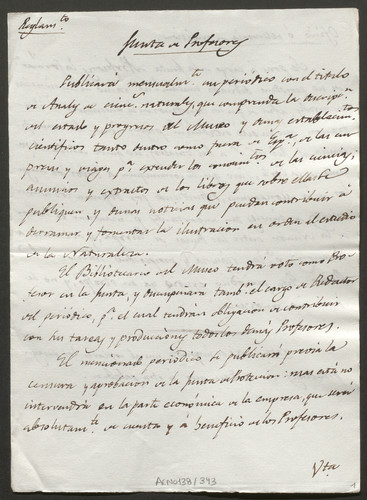 Reglam.to
Junta de Profesores
Publicará mensualm.te un periódico con el titulo
de Anales de cienc. naturales, que comprenda la descripn.
del estado y progresos del Museo y demas establecimtos.
cientificos tanto dentro como fuera de Espª. de las
presas y viages pª. extender los conocim.tos de las ciencias,
anuncios y extractos de los libros que sobre ellas se
publiquen, y demas noticias que puedan contribuir á
derramar y fomentar la ilustracion en orden al estudio
de la Naturaleza.
El Bibliotecario del Museo tendrá voto como Pro-
fesor en la Junta, y desempeñará tamb.n el cargo de Redactor
del periodico, pª. el cual tendran obligacion de contribuir
con sus tareas y producciones todos los demas Profesores.
El mencionado periodico se publicará previa la
censura y aprobacion de la Junta de Proteccion: mas esta no
intervendrá en la parte económica de la empresa, que será
absolutam.te de cuenta y á beneficio de los Profesores.
Vta
ACN0138/393